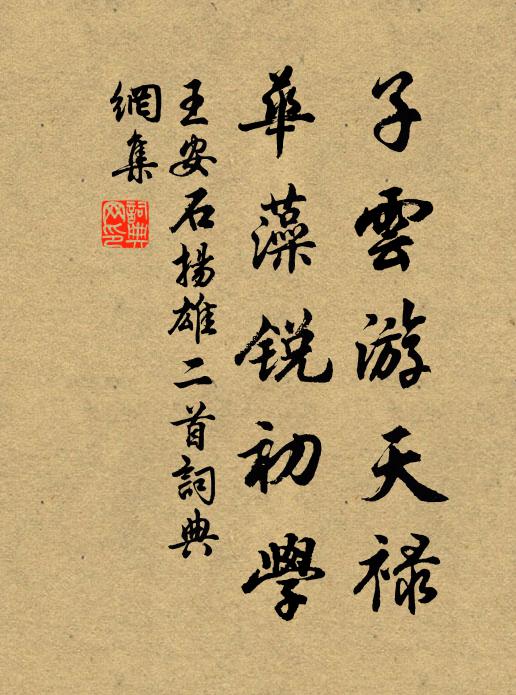 子雲游天祿
華藻銳初學
王安石揚雄二首詞典
網集
詞典網印